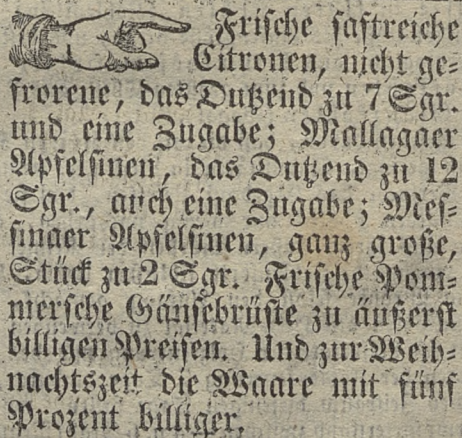 Frische saftreiche
Citronen, nicht ge-
frorene, das Dutzend zu 7 Sgr.
und eine Zugabe; Mallagaer
Apfelsinen, das Dutzend zu 12
Sgr., auch eine Zugabe; Mes-
sinaer Apfelsinen, ganz große,
Stück zu 2 Sgr. Frische Pom-
mersche Gänsebrüste zu äußerst
billigen Preisen. Und zur Weih-
nachtszeit die Waare mit fünf
Prozent billiger.